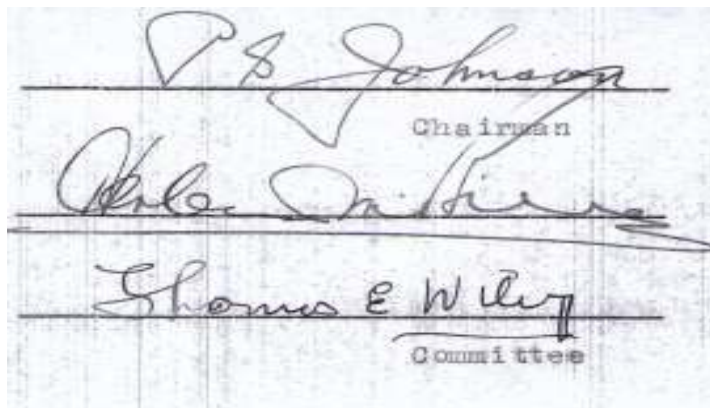 P S Johnson
Chairman
Thomas E Wiley
Committee